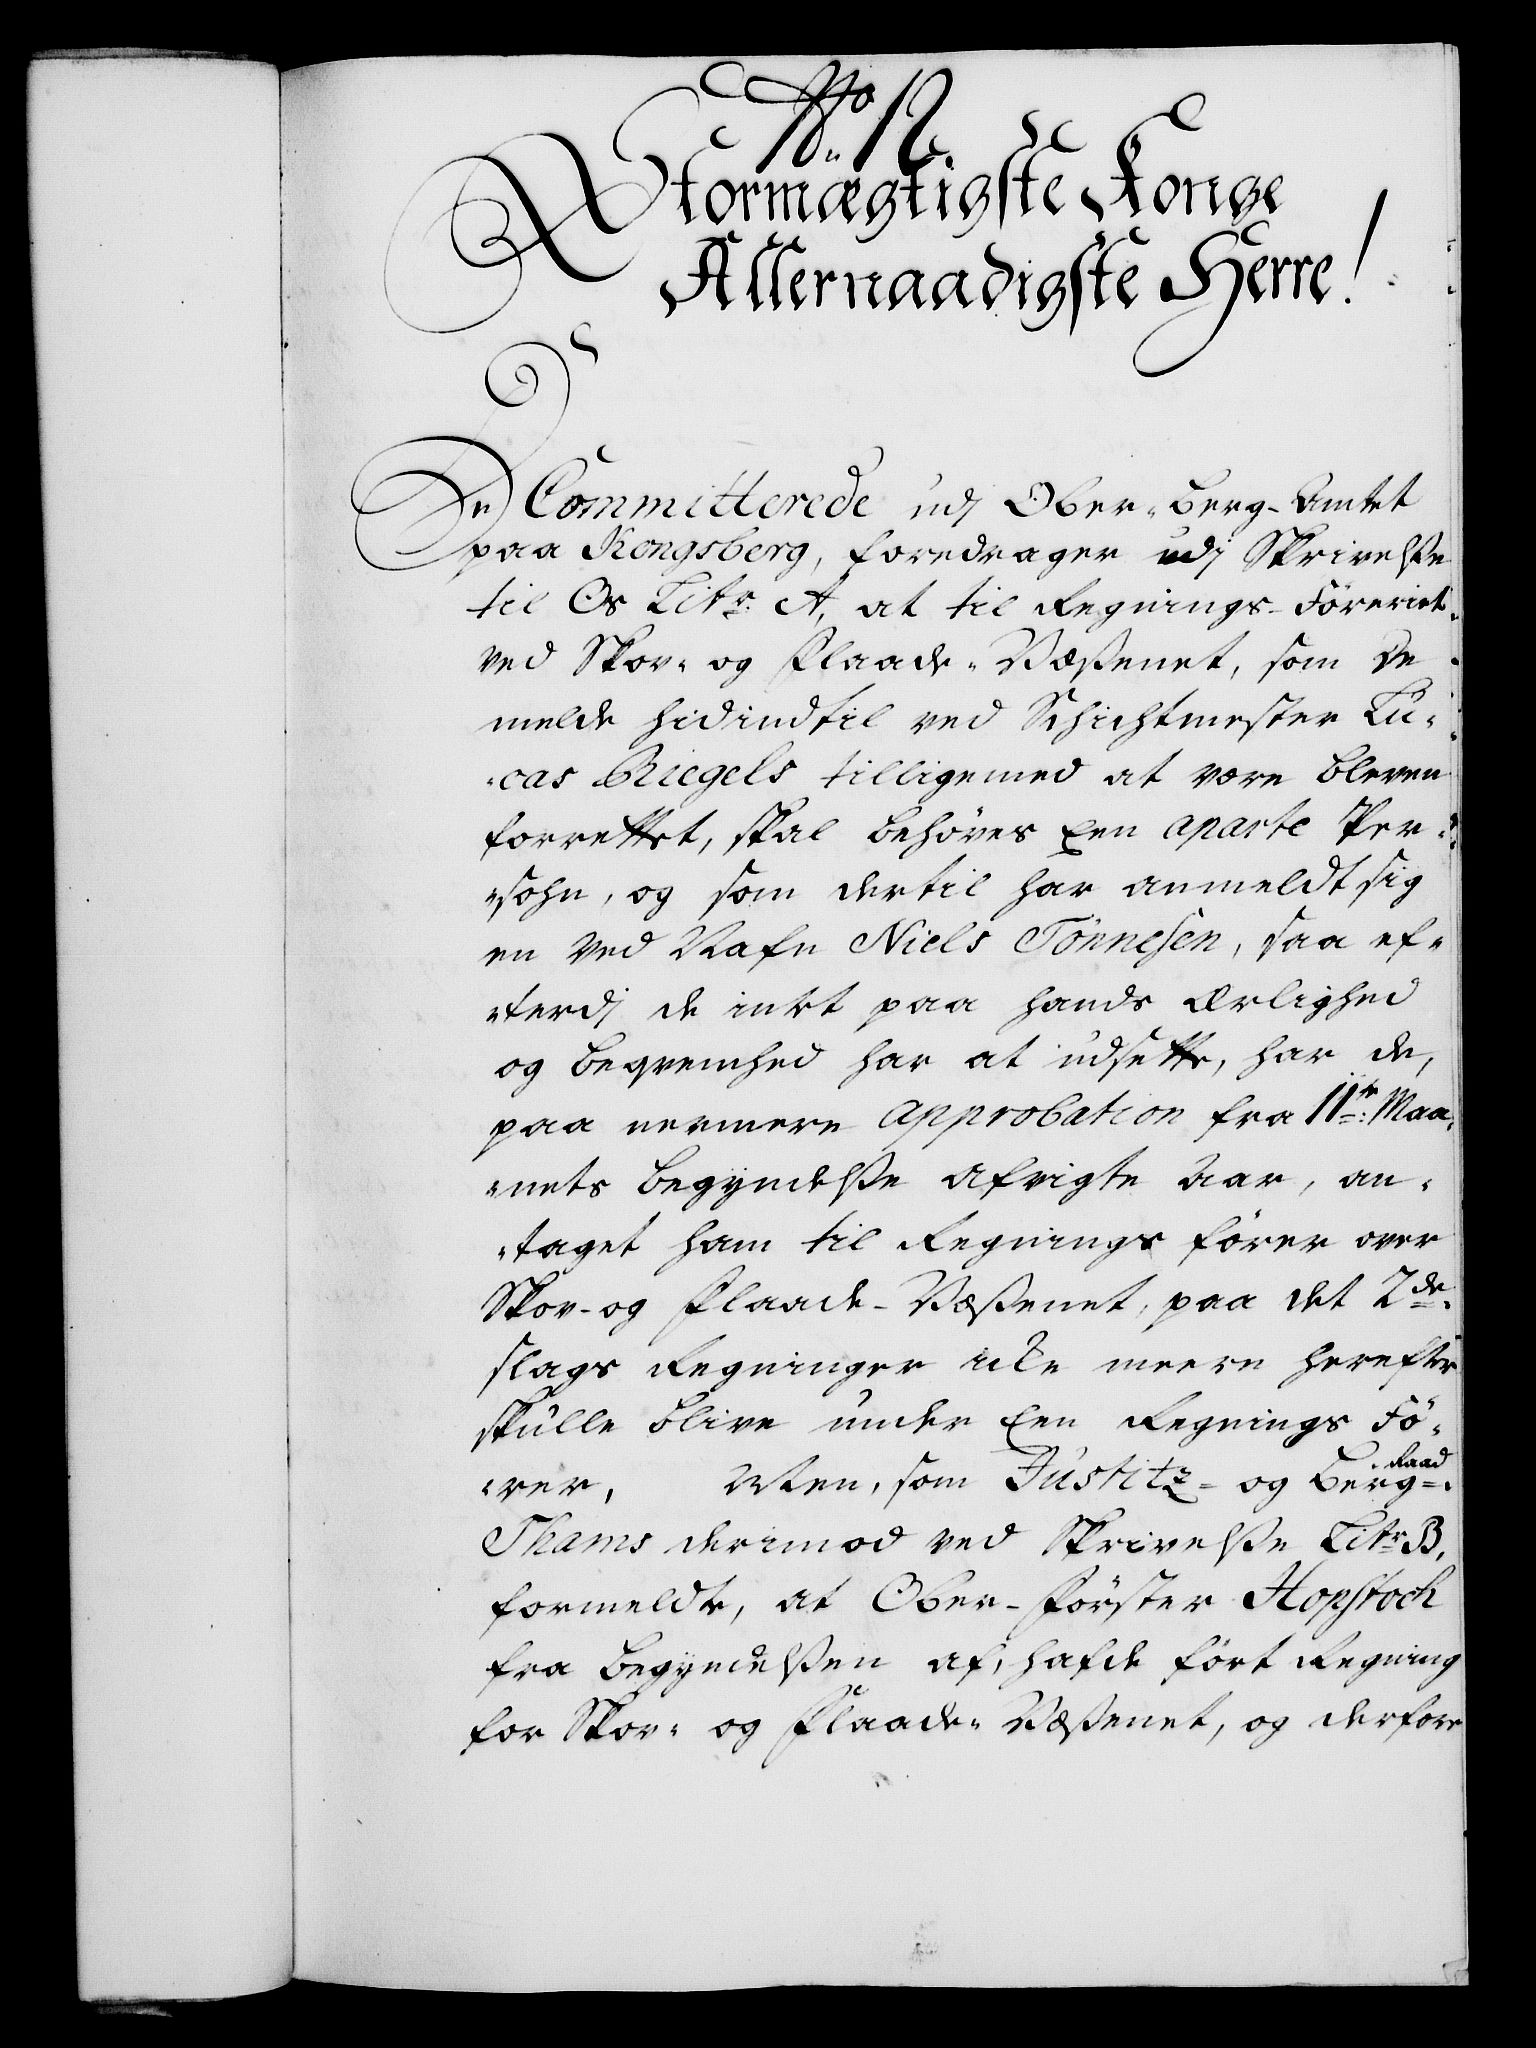 No. 12
Stormægtigste Konge
Allernaadigste Herre!
De Committerede udj Ober-berg-Amtet
paa Kongsberg, foredrager udj Skrivelße
til Os Litr. A, at til Regnings-Föreriet
ved Skov- og Flaade-Væßenet, som de
melde hidindtil ved Schichtmester Lu-
-cas Riegels tilligemed at være bleven
forrettet, skal behöves Een aparte Per-
-sohn, og som dertil har anmeldt sig
en ved Nafn Niels Tönnesen, saa ef-
-terdj de intet paa hands Ærlighed
og beqvemhed har at udsette, har de,
paa nermere Approbation fra 11te Maa-
-nets begyndelße afvigte Aar, an-
-taget ham til Regnings förer over
Skov- og Flaade-Væßenet, paa det 2de
slags Regninger icke meere herefter
skulle blive under Een Regnings Fö-
-rer, Men, som Justitz- og Berg-Raad
Thams derimod ved Skrivelße Litr. B,
formeldte, at Ober-Förster Hopstock
fra begyndelßen af, hafde fört Regning
for Skov- og Flaade-Væßenet, og derfore